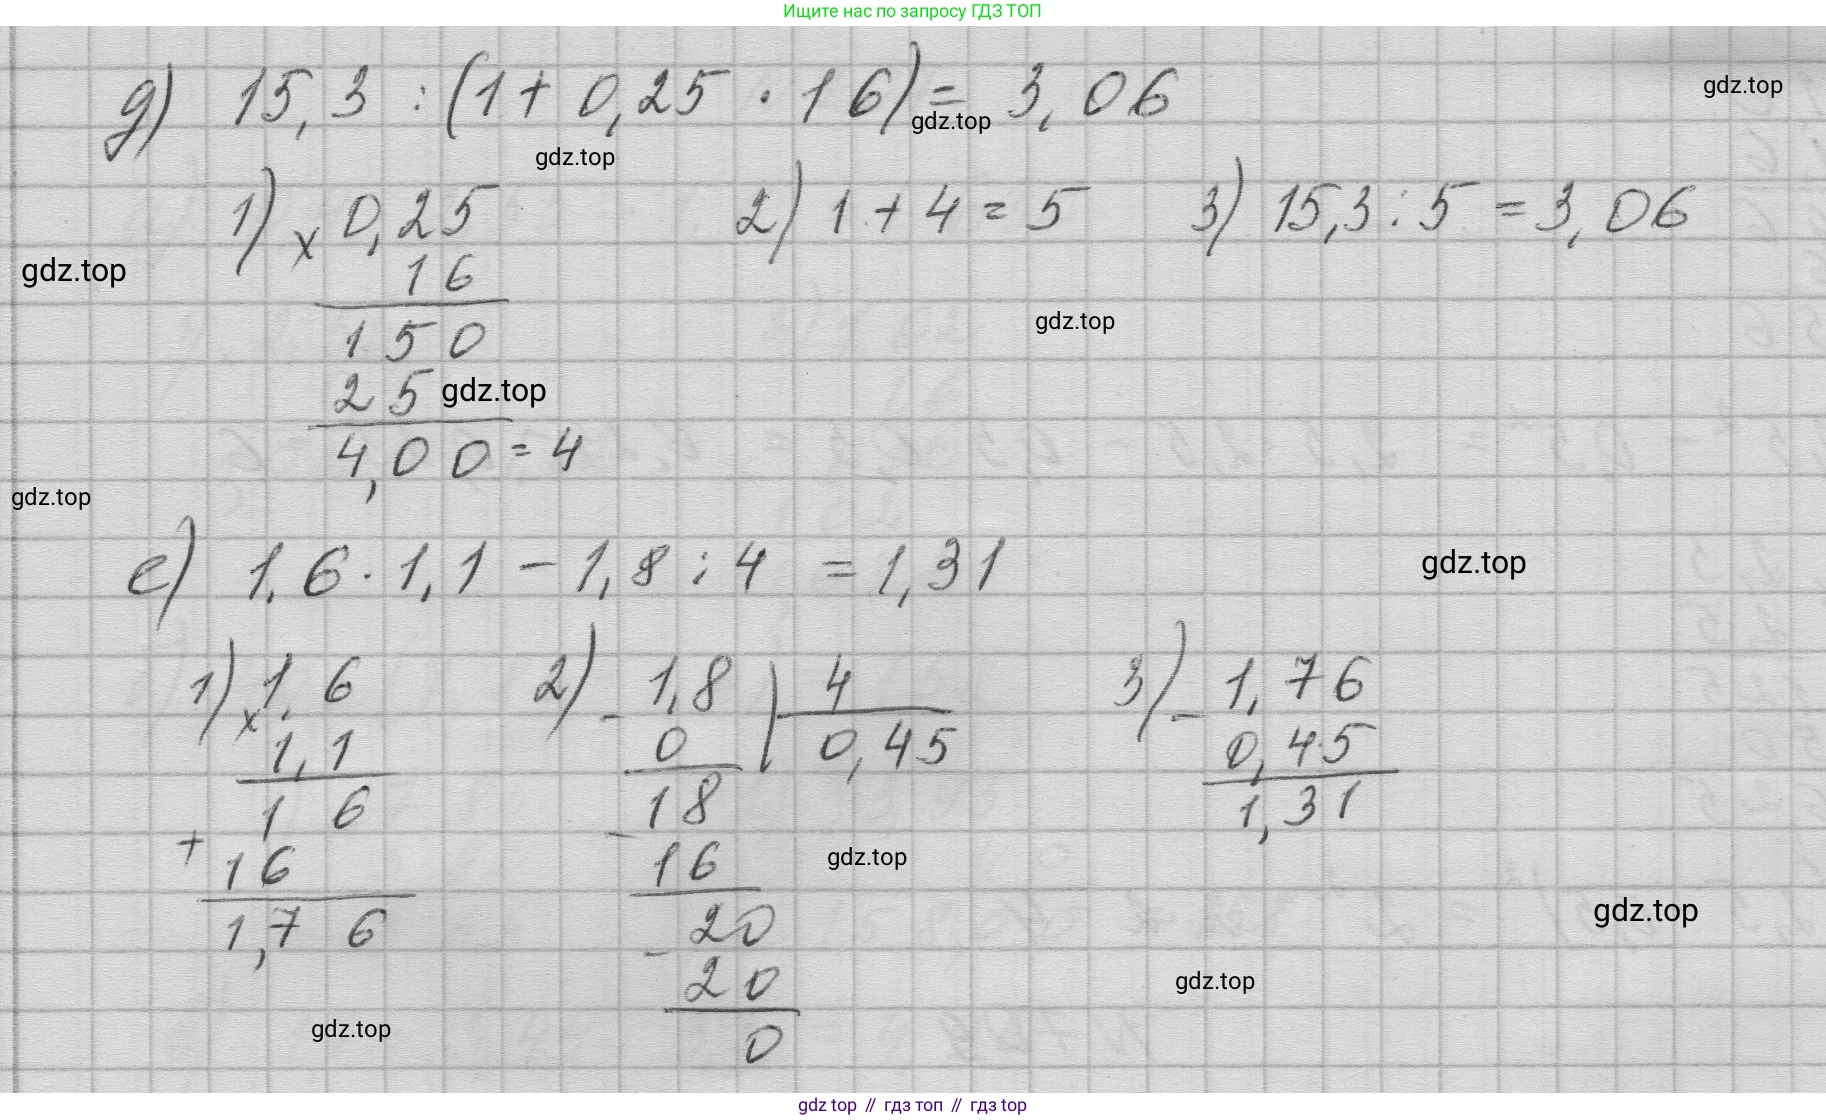 Ищите нас по запросу ГДЗ ТОП
д) 15,3 : (1 + 0,25 · 16) = 3,06
gdz.top
gdz.top
gdz.top
1) × 0,25 2) 1 + 4 = 5 3) 15,3 : 5 = 3,06
16
gdz.top
150
gdz.top
25
gdz.top
4,00 = 4
gdz.top
е) 1,6 · 1,1 - 1,8 : 4 = 1,31
gdz.top
1) × 1,6 2) - 1,8 | 4 3) - 1,76
1,1 0 0,45 0,45
1 6 18 1,31
+ 16 - 16
gdz.top
1,7 6 20
gdz.top
- 20
gdz.top
0
gdz.top
gdz top // гдз топ // gdz top